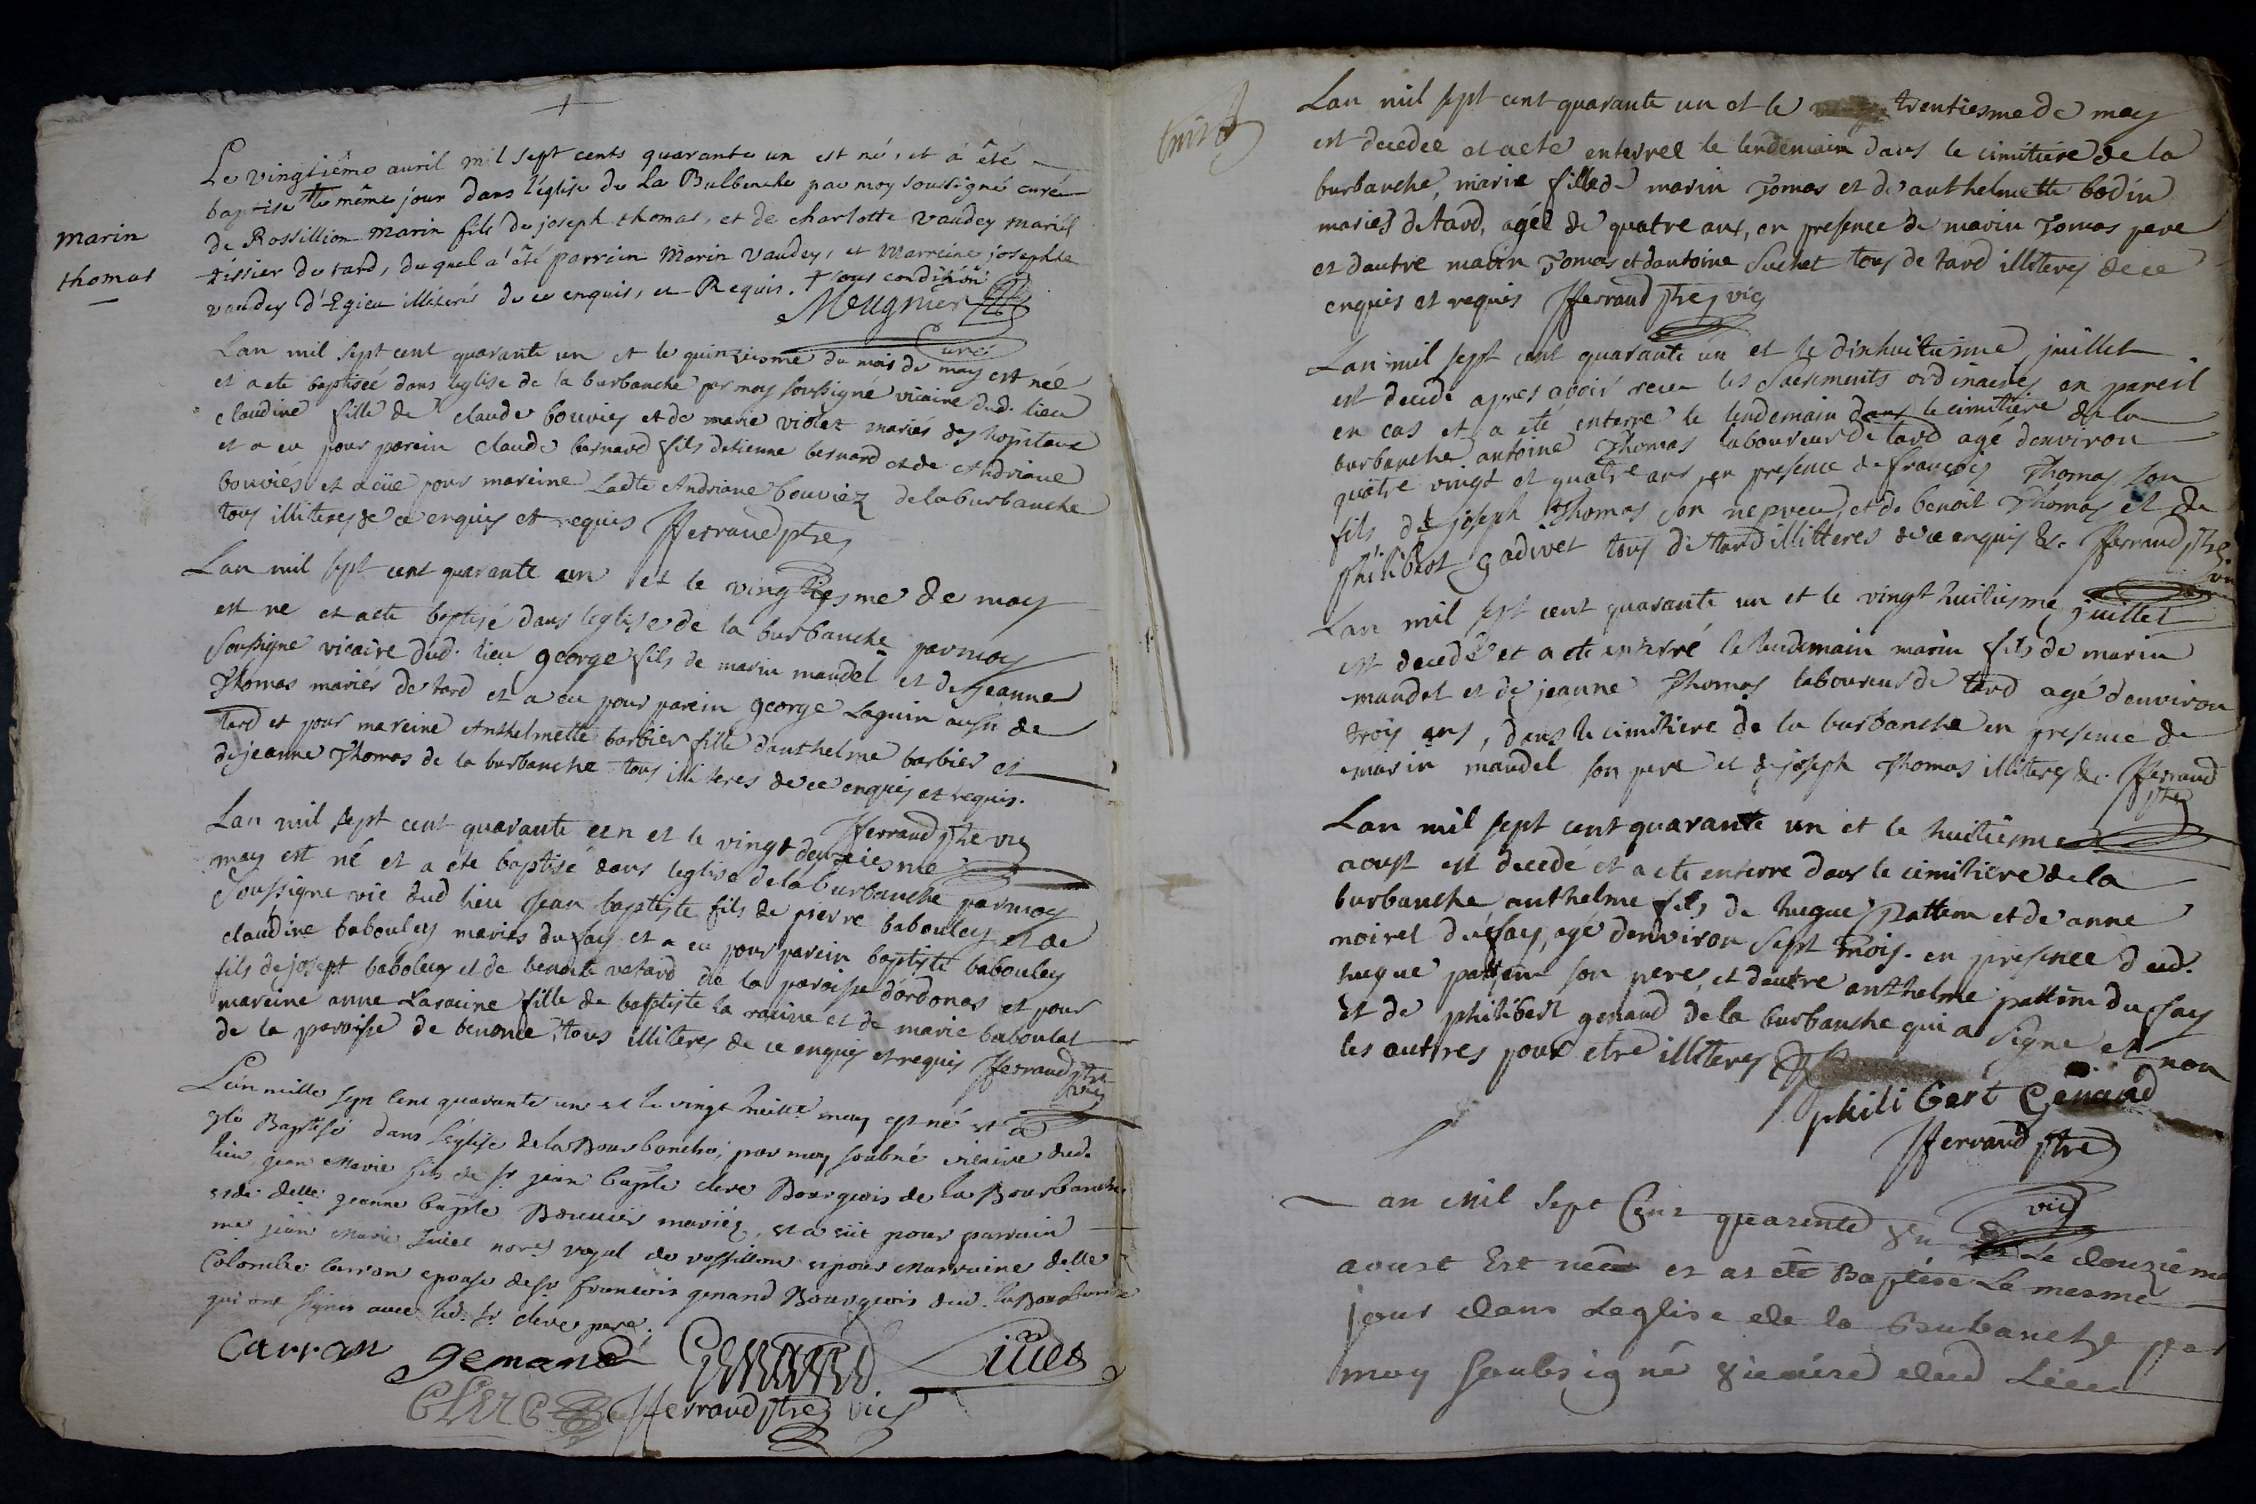 Le vingtième avril mil sept cents quarante un est né, et à été
baptisé le même jour dans l'église de La Bulbenche par moy soussigné curé
de Rossillion marin fils de joseph thomas, et de charlotte vaudey mariés
marin
thomas
tissier de tard, duquel a été parrein Marin vaudey, et Marreine josephte
vaudey d'Egieu illiterés de ce enquis, et Requis. + sous condition
Meugnier
curé
Lan mil sept cent quarante un et le quinziesme du mois de may est née
et a ete baptiseé dans leglise de la burbanche par moy soussigné vicaire dud. lieu
claudine fille de claude bouvies et de marie violet mariés des hopitaux
et a eu pour parein claude bernard fils detienne bernard et de Andriane
bouviés et a eüe pour mareine Ladte Andriane bouviez de la burbanche
tous illiteres de ce enquis et requis fferraud ptre
Lan mil sept cent quarante un et le vingtiesme de may
est ne et a ete baptisé dans leglise de la burbanche par moy
soussigne vicaire dud. lieu george fils de marin mandel et de jeanne
Thomas mariés de tard et a eu pour parein george Laguin aussi de
tard et pour mareine Anthelmette barbier fille danthelme barbier et
de jeanne Thomas de la burbanche tous illiteres de ce enquis et requis.
fferraud ptre vic
Lan mil sept cent quarante un et le vingt deuziesme
may est né et a ete baptisé dans leglise de la burbanche par moy
soussigne vic dud lieu jean baptiste fils de pierre babouley et de
claudine babouley mariés du fay et a eu pour parein baptiste babouley
fils de josept babouley et de benoite vetard de la paroisse dordonas et pour
mareine anne Laracine fille de baptiste la racine et de marie baboulat
de la paroisse de benonce, tous illiteres de ce enquis et requis fferraud ptre
vic
L'an mille sept cent quarante un et le vingt may est né et a
ete Baptisé dans l'église de la Bourbanche, par moy soubné vicaire dud.
lieu, jean Marie fils de sr jean bapte clerc Bourgeois de la Bourbanche
et de delle jeanne bapte Bouvier mariéz, et a eüt pour parrain
me jean Marie nore royal de rossillion et pour Marraine delle
Colombe Carron epouse de sr francois genand Bourgeois dud. la Bourbanche
qui ont signés avec led. sr clerc pere.
Carran genand GENAND
CLERC fferraud ptre vic
Lan mil sept cent quarante un et le trentiesme de may
est decedee et a eté enterreé le lendemain dans le cimitiere de la
burbanche, marie fille de marin Tomas et de anthelmette bodin
mariés de tard, ageé de quatre ans, en presence de marin Tomas pere
et dautre marin Tomas et dantoine Suchet tous de tard illiteres de ce
enquis et requis fferraud ptre vic
Lan mil sept cent quarante un et le dixhuitiesme juillet
est decedé apres avoir receu les sacrements ordinaires en pareil
en cas et a eté enterré le lendemain dans le cimitière de la
burbanche antoine Thomas laboureur de tard agé denviron
quatre vingt et quatre ans en presence de françois Thomas son
fils, de joseph Thomas son nepveu, et de benoit Thomas et de
philibert gadivet tous de tard illitteres de ce enquis &c. fferraud ptre
vic
Lan mil sept cent quarante un et le vingt huitiesme juillet
est decedé et a ete enterré le lendemain marin fils de marin
mandel et de jeanne Thomas laboureur de tard agé denviron
trois ans, dans le cimitiere de la burbanche en presence de
marin mandel son pere et de joseph Thomas illiteres &c. fferraud
ptre
Lan mil sept cent quarante un et le huitiesme
aoust est decedé et a ete enterre dans le cimitiere de la
burbanche anthelme fils de hugue pattem et de anne
noiret du fay, agé denviron sept mois. en presence dud.
hugue pattem son pere, et dautre anthelme pattem du fay
et de philibert genand de la burbanche qui a signe et non
les autres pour etre illiteres
phili bert Genand
fferraud ptre
vic
an Mil Sept Cent quarente un Le douzième
aoust Est née et at ete Baptisé Le mesme
jour dans Leglise de la Bubanche par
moy soubsigné vicaire dud Lieu